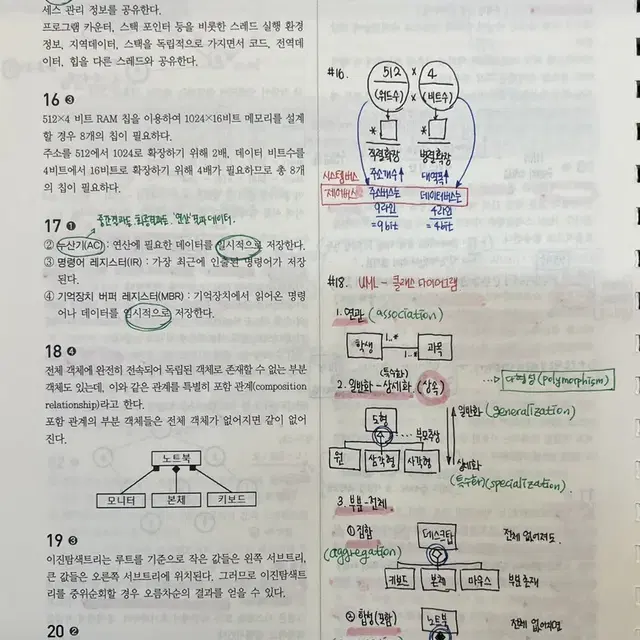 세스 관리 정보를 공유한다.
프로그램 카운터, 스택 포인터 등을 비롯한 스레드 실행 환경
정보, 지역데이터, 스택을 독립적으로 가지면서 코드, 전역데
이터, 힙을 다른 스레드와 공유한다.
16 ③
512×4 비트 RAM 칩을 이용하여 1024×16비트 메모리를 설계
할 경우 8개의 칩이 필요하다.
주소를 512에서 1024로 확장하기 위해 2배, 데이터 비트수를
4비트에서 16비트로 확장하기 위해 4배가 필요하므로 총 8개
의 칩이 필요하다.
17 ①
중간결과든, 최종결과든 '연산' 결과 데이터.
② 누산기(AC) : 연산에 필요한 데이터를 일시적으로 저장한다.
③ 명령어 레지스터(IR) : 가장 최근에 인출된 명령어가 저장
된다.
④ 기억장치 버퍼 레지스터(MBR) : 기억장치에서 읽어온 명령
어나 데이터를 일시적으로 저장한다.
18 ④
전체 객체에 완전히 전속되어 독립된 객체로 존재할 수 없는 부분
객체도 있는데, 이와 같은 관계를 특별히 포함 관계(composition
relationship)라고 한다.
포함 관계의 부분 객체들은 전체 객체가 없어지면 같이 없어
진다.
노트북
모니터 본체 키보드
19 ③
이진탐색트리는 루트를 기준으로 작은 값들은 왼쪽 서브트리,
큰 값들은 오른쪽 서브트리에 위치된다. 그러므로 이진탐색트
리를 중위순회할 경우 오름차순의 결과를 얻을 수 있다.
20 ②
#16.
512 × 4
(워드수) × (비트수)
* *
직렬확장 병렬확장
시스템버스 주소개수↑ 대역폭↑
제어버스 주소버스는 데이터버스는
9라인 4라인
=9bit =4bit
#18. UML - 클래스 다이어그램
1. 연관 (association)
학생 1..* 1..* 과목
(특수화)
2. 일반화-상세화 (상속) ...> 다형성(polymorphism)
도형
부모추상
원 삼각형 사각형
일반화 (generalization)
상세화
(특수화)(specialization)
3. 부분-전체
① 집합 데스크탑 전체 없어져도
(aggregation)
키보드 본체 마우스 부분존재
② 합성(포함) 노트북 전체 없어지면